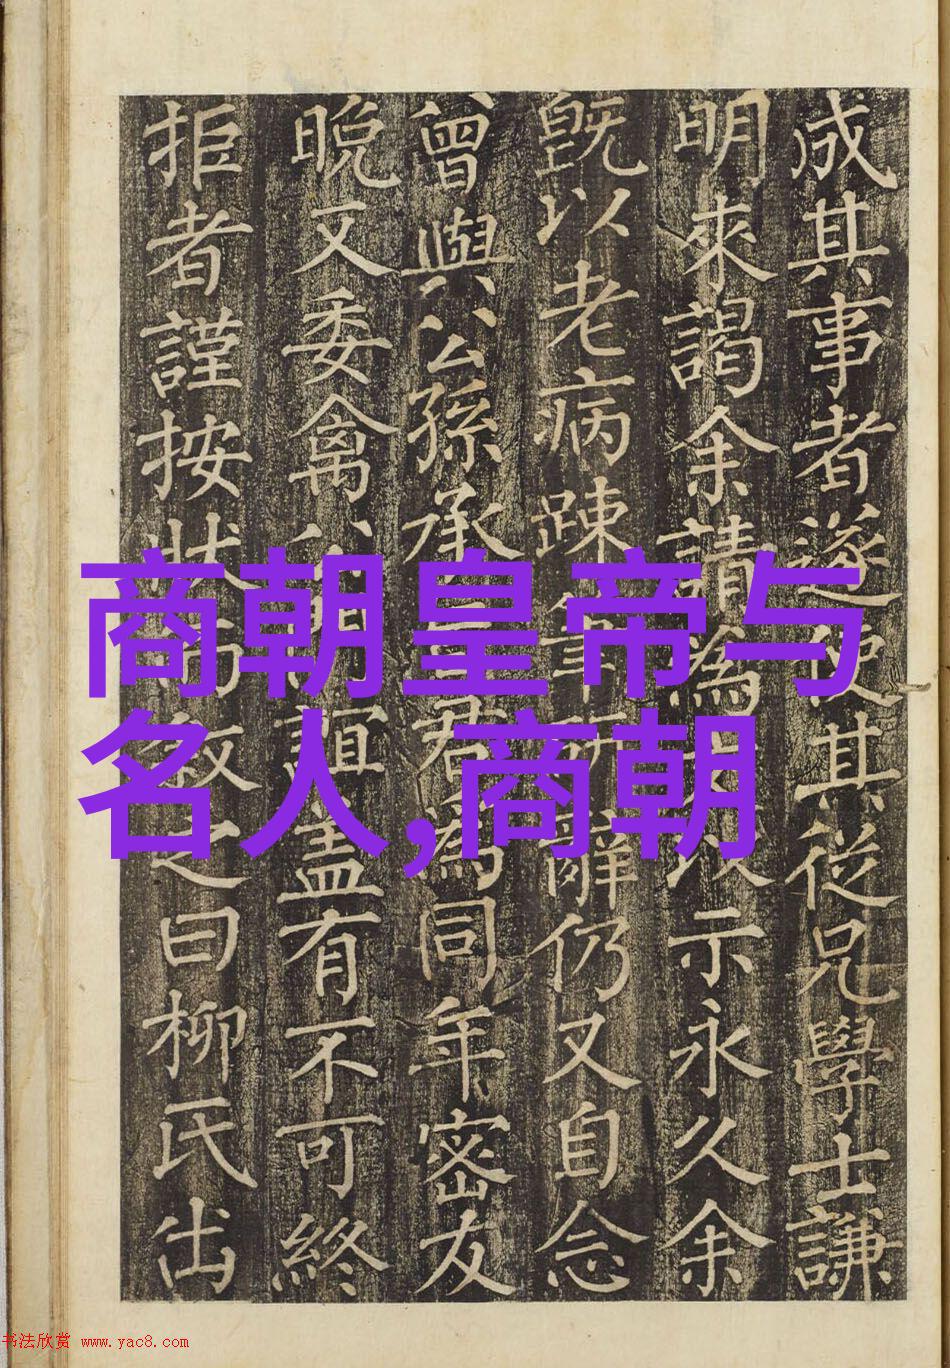 成其事者遂使其從兄學士謙
明來謁余請為以示永久余
既以老病踈辭仍又自念
曾與公孫承君為同年密友
晚又委禽公門誼盖有不可終
拒者謹按狀而敘之曰柳氏出
商朝皇帝与
名人,商朝
书法欣赏 www.yac8.com